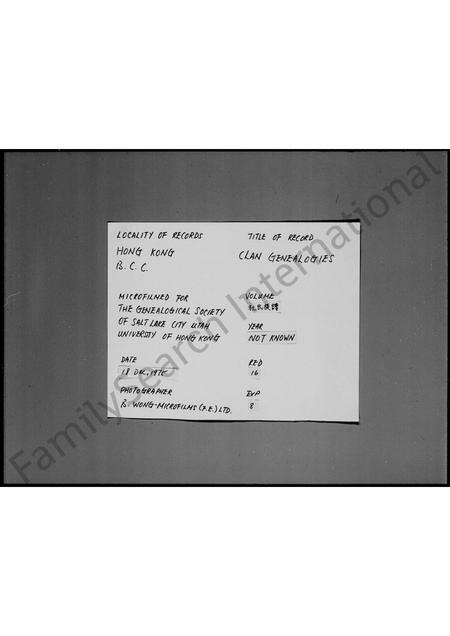 LOCALITY OF RECORDS
HONG KONG
B. C. C.
TITLE OF RECORD
CLAN GENEALOGIES
MICROFILMED FOR
THE GENEALOGICAL SOCIETY
OF SALT LAKE CITY UTAH
UNIVERSITY OF HONG KONG
VOLUME
YEAR
NOT KNOWN
DATE
18 DEC, 1975
RED
16
PHOTOGRAPHER
B. WONG-MICROFILMS (F.E.) LTD.
EXP
8
FamilySearch International